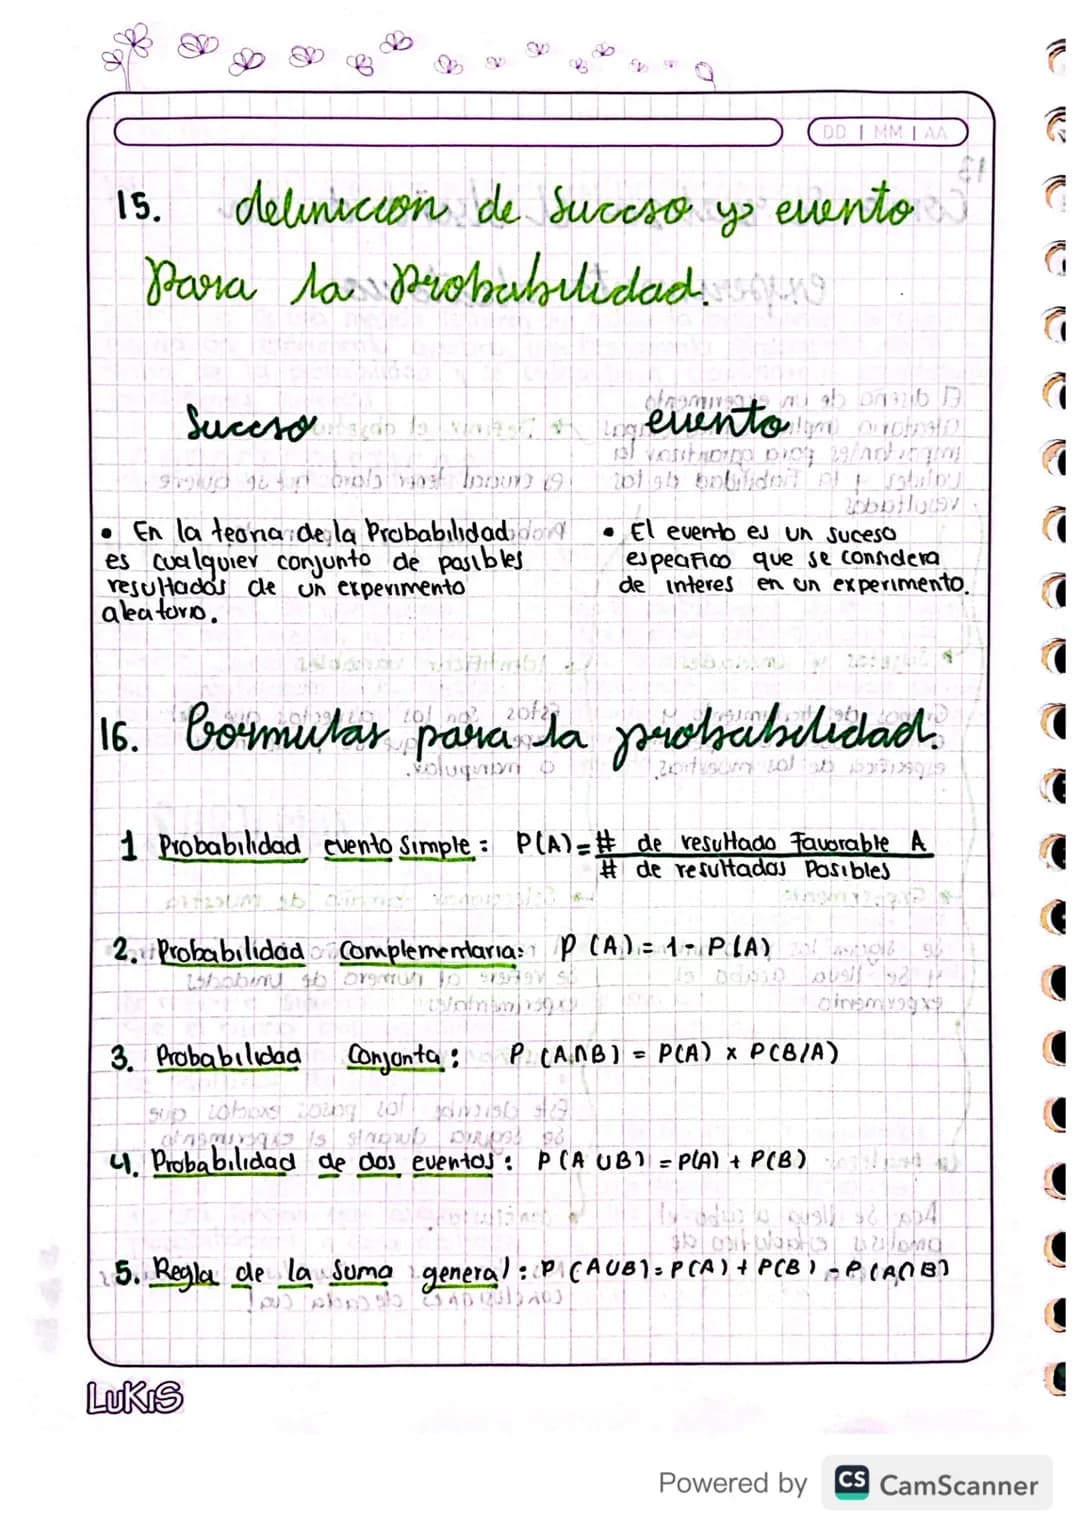 DD | MM | AA
15. definicion de Suceso y evento
Para la Probabilidad.
Suceso
evento
• En la teoria de la Probabilidad
es cualquier conjunto de posibles
resultados de un experimento
aleatorio.
• El evento es un suceso
especifico que se considera
de interes en un experimento.
16. Formulas para la probabilidad.
1 Probabilidad evento Simple: P(A)= # de resultado Favorable A
# de resultados Posibles
2. Probabilidad Complementaria: P (A) = 1 - P(A)
3. Probabilidad Conjonta: P (A∩B) = P(A) x P(B/A)
4. Probabilidad de dos eventos: P (A UB) = P(A) + P(B)
5. Regla de la Suma general: P (AUB) = P(A) + P(B) - P(A∩B)
LUKIS
Powered by CS CamScanner